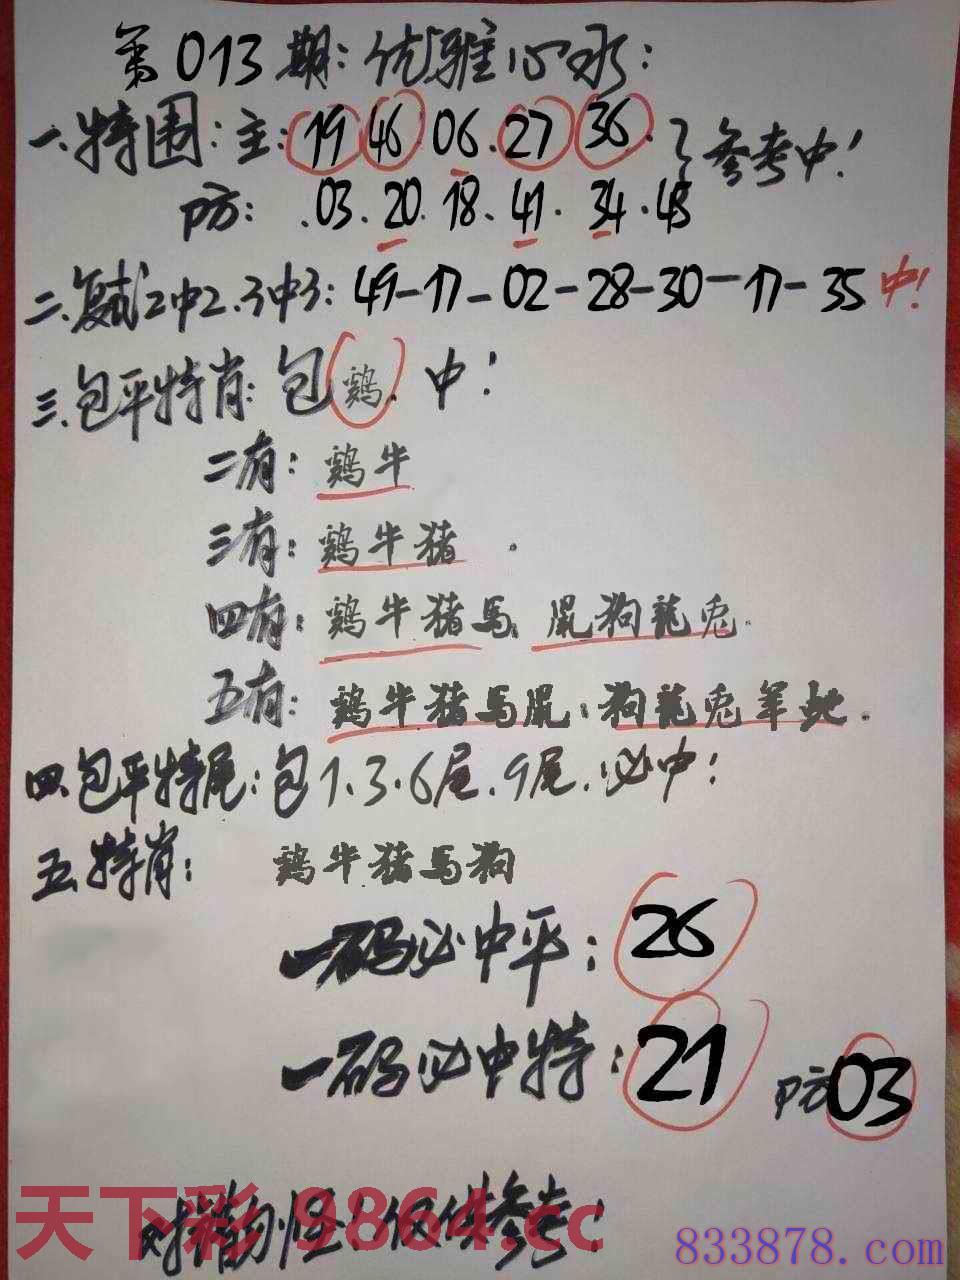 第013期:优雅心水:
一.特围:主:19 46 06.27 36.}参考中!
防: .03.20.18.41.34.48
二.复式2中2.3中3:49-17-02-28-30-17-35中!
三.包平特肖:包鷄.中!
二有:鷄牛
三有:鷄牛猪.
四有:鷄牛猪馬 鼠狗龍兔.
五有:鷄牛猪馬鼠:狗龍兔羊蛇.
四.包平特尾:包1.3.6尾.9尾.必中!
五.特肖: 鷄牛猪馬狗
一码必中平:26
一码必中特:21 防03
天下彩 9864.cc
怪!仅供参考!
833878.com